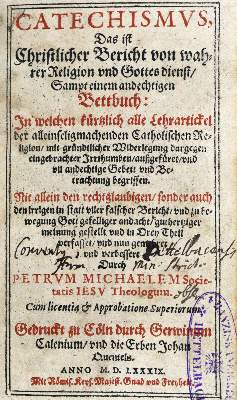 CATECHISMVS,
Das ist
Christlicher Bericht von wah-
rer Religion vnd Gottes dienst/
Sampt einem andechtigen
Bettbuch:
In welchen kürtzlich alle Lehrartickel
der alleinseligmachenden Catholischen Re-
ligion/ mit gründtlicher Widerlegung dargegen
eingebrachter Irrthumben/ außgefüret/ vnd
vil andechtige Gebett vnd Be-
trachtung begriffen.
Mit allein den rechtglaubigen/ sonder auch
den irrigen in statt viler falscher Bericht/ vnd zu be-
wegung Gott gefelliger andacht/ guthertziger
meinung gestellt vnd in Drey Theil
verfasset/ vnd nun gemehret
vnd verbessert
Durch
PETRVM MICHAELEM Socie-
tatis IESV Theologum.
Cum licentia & Approbatione Superiorum.
Gedruckt zu Cöln durch Gerwinum
Calenium/ vnd die Erben Johan
Quentels.
ANNO M. D. LXXXIX.
Mit Röm. Keys. Maiest. Gnad vnd Freyheit.